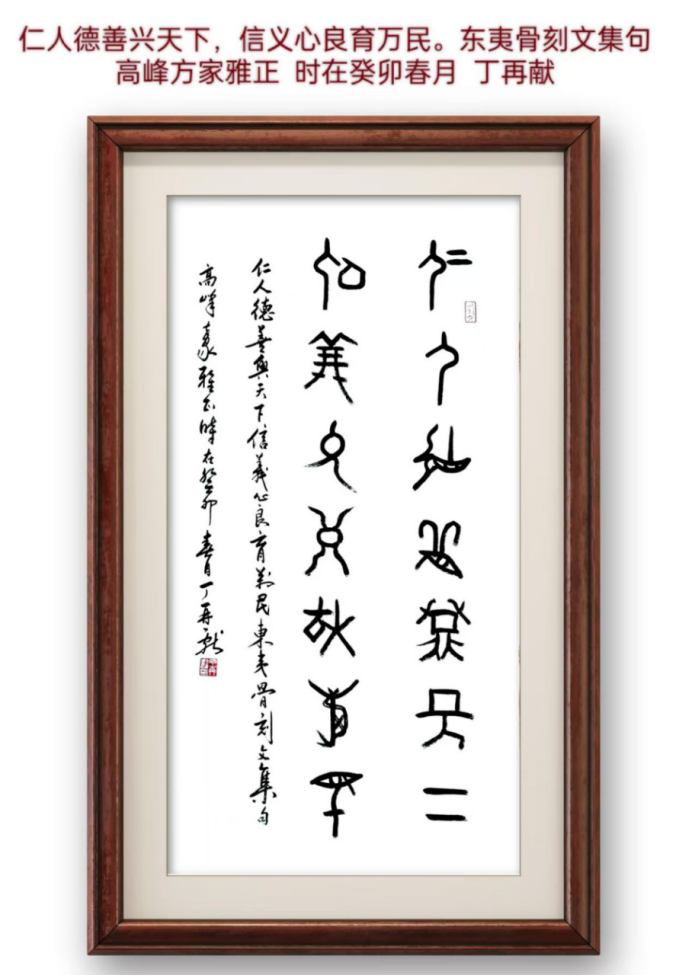 仁人德善兴天下，信义心良育万民。东夷骨刻文集句
高峰方家雅正 时在癸卯春月 丁再献
仁人德善興天下
信義心良育萬民
仁人德善興天下信義心良育萬民東夷骨刻文集句
高峰方家雅正時在癸卯春月丁再献